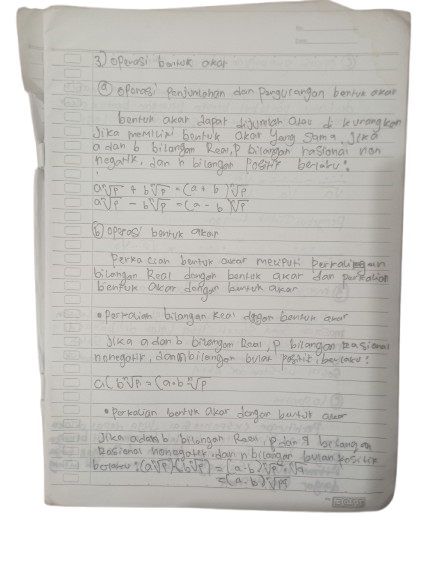 3) Operasi bentuk akar
(a) Operasi Penjumlahan dan Pengurangan bentuk akar
bentuk akar dapat dijumlah atau di kurangkan
Jika memiliki bentuk akar yang sama, Jika
a dan b bilangan Real, P bilangan rasional non
negatif, dan n bilangan Positif berlaku:
a ⁿ√P + b ⁿ√P = (a + b) ⁿ√P
a ⁿ√P - b ⁿ√P = (a - b) ⁿ√P
(b) Operasi bentuk akar
Perkalian bentuk akar meliputi perkalian
bilangan Real dengan bentuk akar dan perkalian
bentuk akar dengan bentuk akar
• Perkalian bilangan Real dengan bentuk akar
Jika a dan b bilangan Real, P bilangan Rasional
nonegatif, dan n bilangan bulat positif, berlaku:
a(b ⁿ√P) = (a.b ⁿ√P
• Perkalian bentuk akar dengan bentuk akar
Jika a dan b bilangan Real, P dan q bilangan
Rasional nonegatif, dan n bilangan bulat positif
berlaku: (a ⁿ√P)(b ⁿ√P) = (a.b) ⁿ√P . ⁿ√q
= (a.b) ⁿ√pq